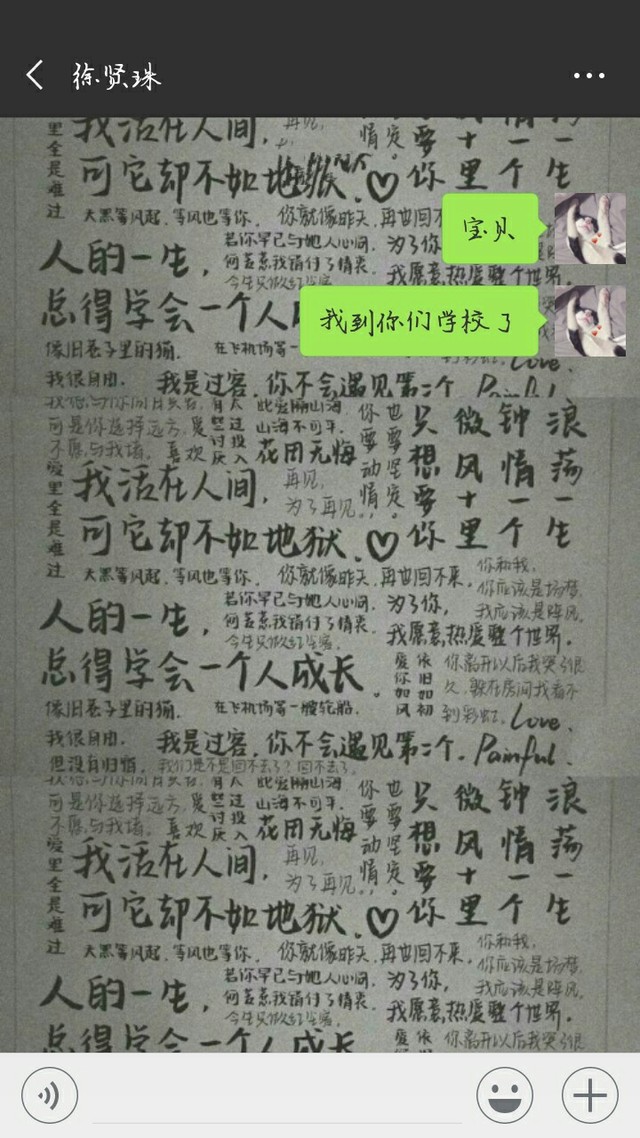 徐贤珠
我活在人间，
再见，
里全是难过
可它却不如地狱
你里个生
大黑等风起，等风也等你，
你就像昨天，再也回不
宝贝
人的一生，
若你早已与她人心间，
为了你
何苦惹我错付了情衷
我愿意热爱整个世界
总得学会一个人
我到你们学校了
像旧巷子里的猫，
在飞机场等一
Love
我很自由，
我是过客，你不会遇见第二个
Painful
可是你选择远方，
山海不可平，
不愿与我诸，喜欢
花用无悔
只想要你
微风里
钟情个
浪荡生
你要动情
也要坚定
爱里全是难过
我活在人间，
再见，
为了再见，
可它却不如地狱，
大黑等风起，等风也等你，
你就像昨天，再也回不来，
你和我，
你应该是场梦，
我应该是阵风，
人的一生，
若你早已与她人心间，
为了你，
何苦惹我错付了情衷
我愿意热爱整个世界，
总得学会一个人成长。
爱你如风
依旧如初
你离开以后我哭了很
久，躲在房间我看不
到彩虹，
像旧巷子里的猫，
在飞机场等一艘轮船，
Love
我很自由，
我是过客，你不会遇见第二个，
Painful
但没有归宿，
我们是不是回不去了？回不去了，
可是你选择远方，
山海不可平，
不愿与我诸，喜欢
花用无悔
只想要你
微风里
钟情个
浪荡生
你要动情
也要坚定
爱里全是难过
我活在人间，
再见，
为了再见，
可它却不如地狱，
大黑等风起，等风也等你，
你就像昨天，再也回不来，
你和我，
你应该是场梦，
我应该是阵风，
人的一生，
若你早已与她人心间，
为了你，
何苦惹我错付了情衷
我愿意热爱整个世界，
总得学会一个人成长
你离开以后我哭了很